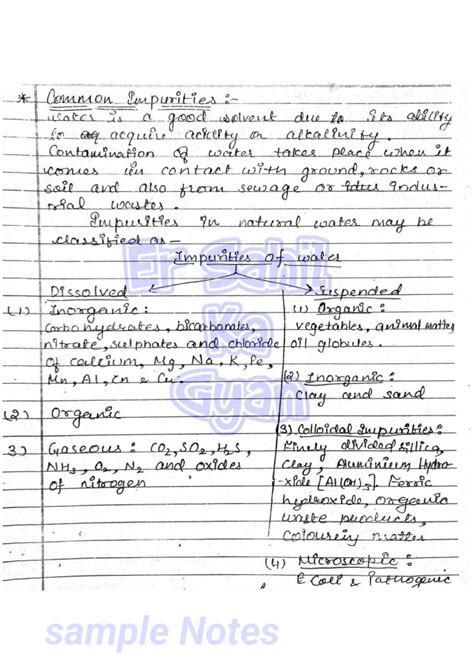 * Common Impurities :-
water is a good solvent due to its ability
to aq acquire acidity or alkalinity.
Contamination of water takes place when it
comes in contact with ground, rocks or
soil and also from sewage or indus-
trial wastes.
Impurities in natural water may be
classified as —
Impurities of water
Dissolved
(1) Inorganic :
Carbohydrates, bicarbonates,
nitrate, sulphates and chloride
of calcium, Mg, Na, K, Fe,
Mn, Al, Zn & Cu.
(2) Organic
3) Gaseous : CO2, SO2, H2S,
NH3, O2, N2 and oxides
of nitrogen
Suspended
(1) Organic :
vegetables, animal matter
oil globules.
(2) Inorganic :
Clay and sand
(3) Colloidal Impurities :
Finely divided sillica,
Clay, Aluminium Hydro-
-xide [Al(OH)3] Ferric
hydroxide, organic
waste products,
colourely matter
(4) Microscopic :
E Coli & Pathogenic
Er Sahil
Ka
Gyan
sample Notes